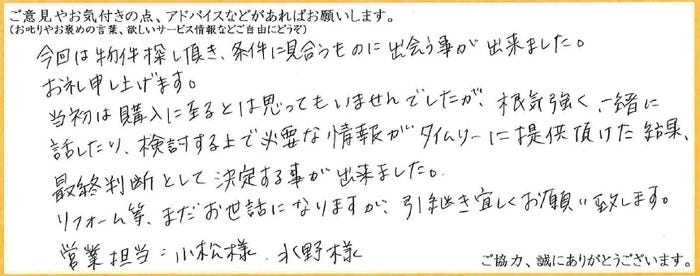 ご意見やお気付きの点、アドバイスなどがあればお願いします。
(お叱りやお褒めの言葉、欲しいサービス情報などご自由にどうぞ)
今回は物件探し頂き、条件に見合うものに出会う事が出来ました。
お礼申し上げます。
当初は購入に至るとは思ってもいませんでしたが、根気強く、一緒に
話したり、検討する上で必要な情報がタイムリーに提供頂けた結果、
最終判断として決定する事が出来ました。
リフォーム等、まだお世話になりますが、引継き宜しくお願い致します。
営業担当：小松様、水野様
ご協力、誠にありがとうございます。